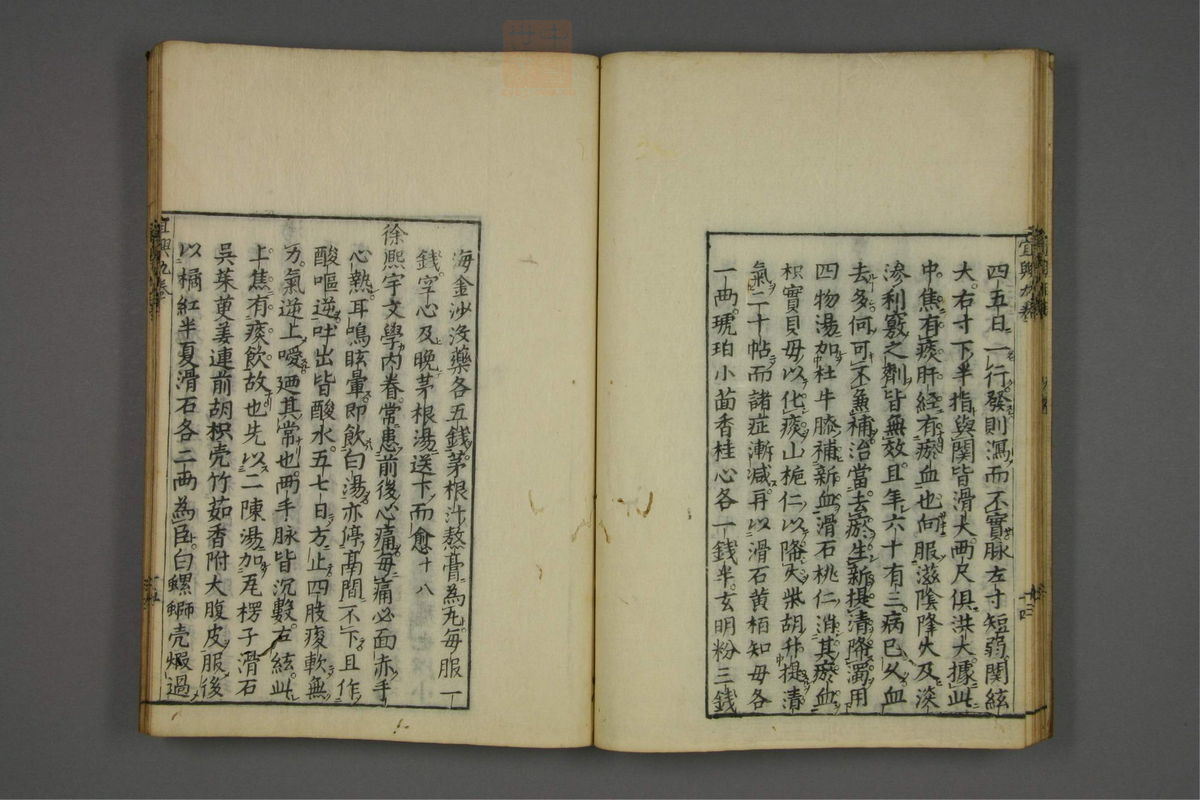 四五日一行發則瀉而不實脉左寸短弱関絃
大右寸下半指與関皆滑大兩尺俱洪大據此
中焦有痰肝經有瘀血也向服滋陰降火及淡
滲利竅之劑皆無效且年六十有三病已久血
去多何可不魚補治當去瘀生新提清降濁用
四物湯加杜牛膝補新血滑石桃仁消其瘀血
枳實貝母以化痰山梔仁以降火柴胡升提清
氣二十帖而諸症漸减再以滑石黄栢知母各
一兩琥珀小茴香桂心各一錢半玄明粉三錢
海金沙没藥各五錢茅根汁熬膏為丸毎服一
錢空心及晚茅根湯送下而愈十八
徐熙宇文學内眷常患前後心痛毎痛必面赤手
心熱耳鳴眩暈即飲白湯亦停膈間不下且作
酸嘔逆吐出皆酸水五七日方止四肢痠軟無
力氣逆上噯廼其常也兩手脉皆沉數左絃此
上焦有痰飲故也先以二陳湯加瓦楞子滑石
吳茱萸姜連前胡枳壳竹茹香附大腹皮服後
以橘紅半夏滑石各二兩為臣白螺螄壳煅過